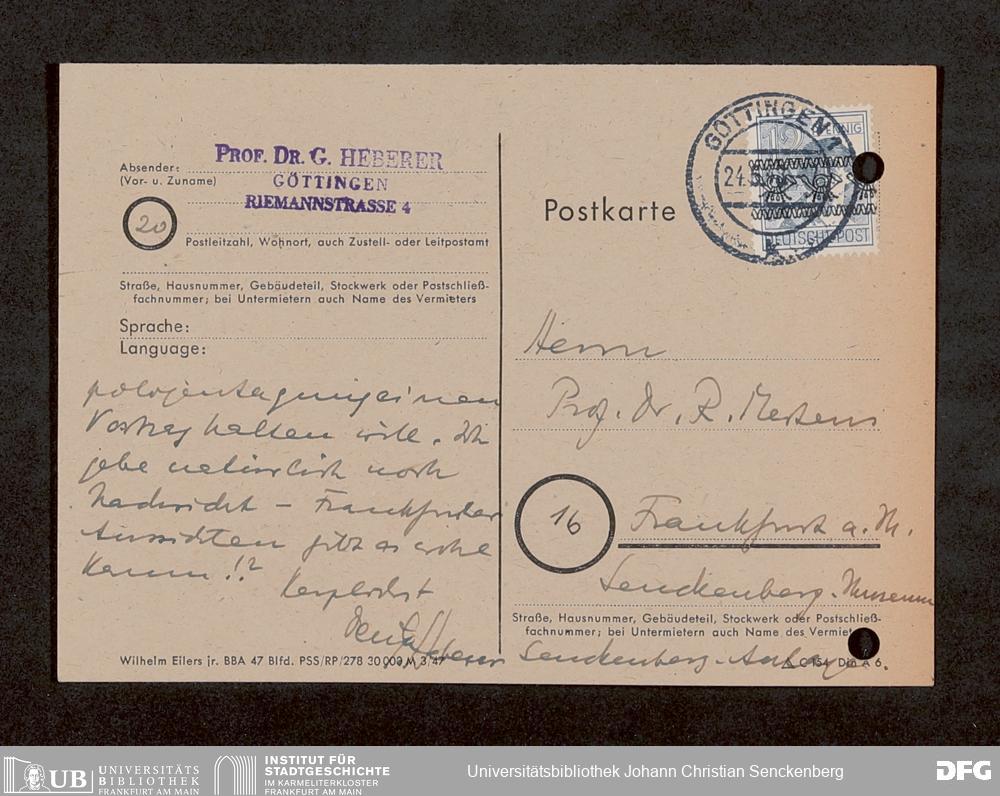 PROF. DR. G. HEBERER
GÖTTINGEN
RIEMANNSTRASSE 4
Absender:
(Vor- u. Zuname)
20
Postleitzahl, Wohnort, auch Zustell- oder Leitpostamt
Straße, Hausnummer, Gebäudeteil, Stockwerk oder Postschließ-
fachnummer; bei Untermietern auch Name des Vermieters
Sprache:
Language:
pologentagung einen
Vortrag halten will. Ich
gebe natürlich noch
Nachricht - Frankfurter
Aussichten gibt es wohl
kaum!!?
Herzlichst
Heberer
Wilhelm Eilers jr. BBA 47 Blfd. PSS/RP/278 30 000 M 3/47
GÖTTINGEN 1
24.
12 PFENNIG
DEUTSCHE POST
Postkarte
Herrn
Prof. Dr. R. Mertens
16
Frankfurt a. M.
Senckenberg-Museum
Straße, Hausnummer, Gebäudeteil, Stockwerk oder Postschließ-
fachnummer; bei Untermietern auch Name des Vermiet
Senckenberg-Anlage
C 154 Din A 6.
UB UNIVERSITÄTS
BIBLIOTHEK
FRANKFURT AM MAIN
INSTITUT FÜR
STADTGESCHICHTE
IM KARMELITERKLOSTER
FRANKFURT AM MAIN
Universitätsbibliothek Johann Christian Senckenberg
DFG